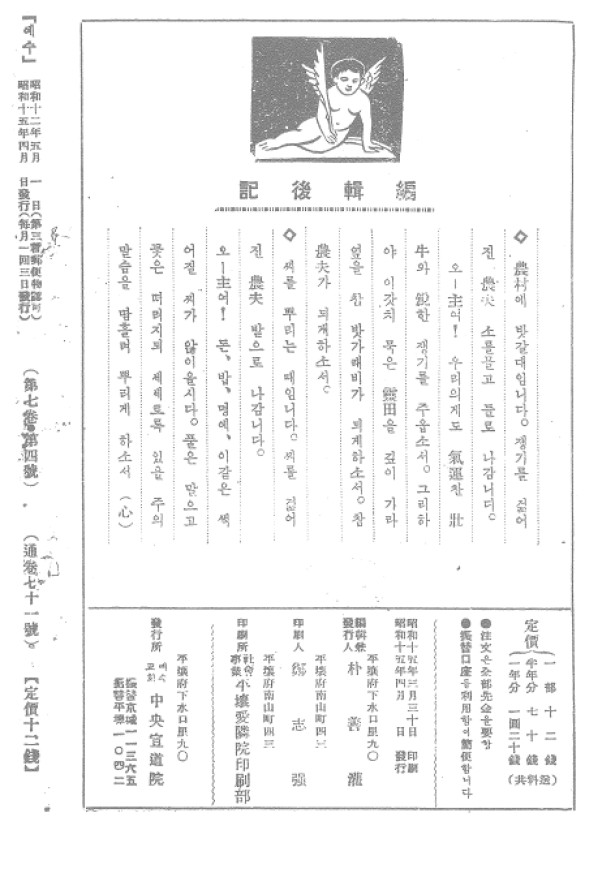 編輯後記
◇ 農村에 밧갈때임니다。쟁기를 걸어
진 農夫 소를몰고 들로 나감니다。
오—主여! 우리의게도 氣運찬 壯
牛와 銳한 쟁기를 주읍소서。그리하
야 이갓치 묵은 靈田을 깊이 가라
엎을 참 밧가래비가 되게하소서。참
農夫가 되게하소서。
◇ 씨를 뿌리는 때임니다。씨를 걸어
진 農夫 밭으로 나감니다。
오—主여! 돈、밥、명예、이같은 썩
어질 씨가 않이올시다。풀은 말으고
꽃은 떠러지되 세세토록 있을 주의
말슴을 뿌리게 하소서 (心)
定價
一部 十二錢
半年分 七十錢
一年分 一圓二十錢
(共料送)
●注文은全部先金을要함
●振替口座를利用함이簡便합니다
昭和十五年三月三十日 印刷
昭和十五年四月 日 發行
平壤府下水口里九〇
編輯兼發行人 朴善
平壤府南山町四三
印刷人 志强
平壤府南山町四三
印刷所 社會事業 平壤愛隣院印刷部
平壤府下水口里九〇
發行所 예수교회 中央宣道院
振替京城一一三六五
振替平壤一〇四二
『예수』
昭和十二年五月 一日(第三種郵便物認可)
昭和十五年四月 日發行(每月一回三日發行)
(第七卷第四號)
(通卷七十一號)
【定價十二錢】